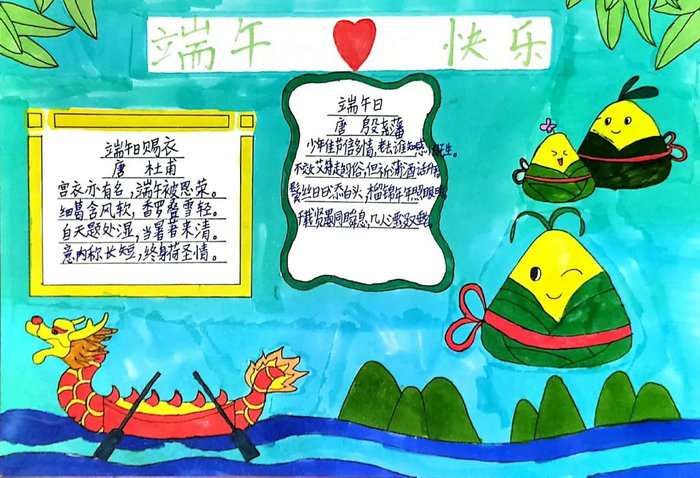 端午 快乐
端午日赐衣
唐 杜甫
宫衣亦有名,端午被恩荣。
细葛含风软,香罗叠雪轻。
白天题处湿,当暑著来清。
意内称长短,终身荷圣情。
端午日
唐 殷尧藩
少年佳节倍多情,老去谁知感生。
不效艾符趋习俗,但祈蒲酒话升
鬓丝日日添白头,榴锦年年照眼明
千载贤愚同瞬息,几人